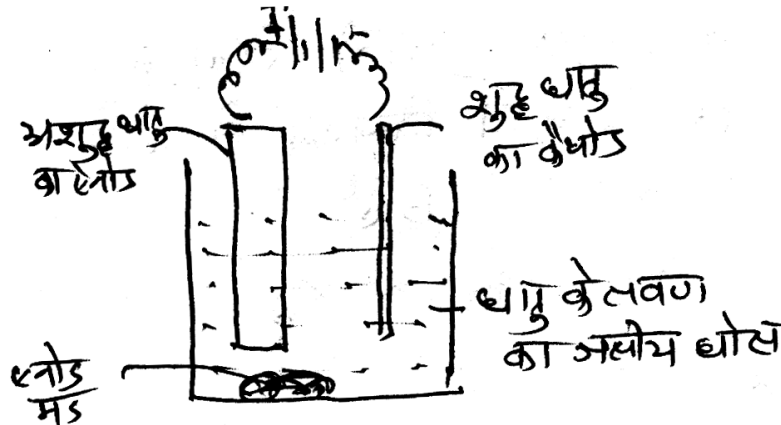 + -
अशुद्ध धातु
का एनोड
शुद्ध धातु
का कैथोड
धातु के लवण
का जलीय घोल
एनोड
मड